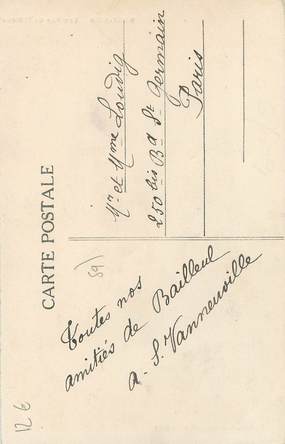 CARTE POSTALE
Toutes nos
amitiés de Bailleul
A. S. Vanneuville
Mr et Mme Loudig
250 bis Bd St Germain
Paris
59
12 €